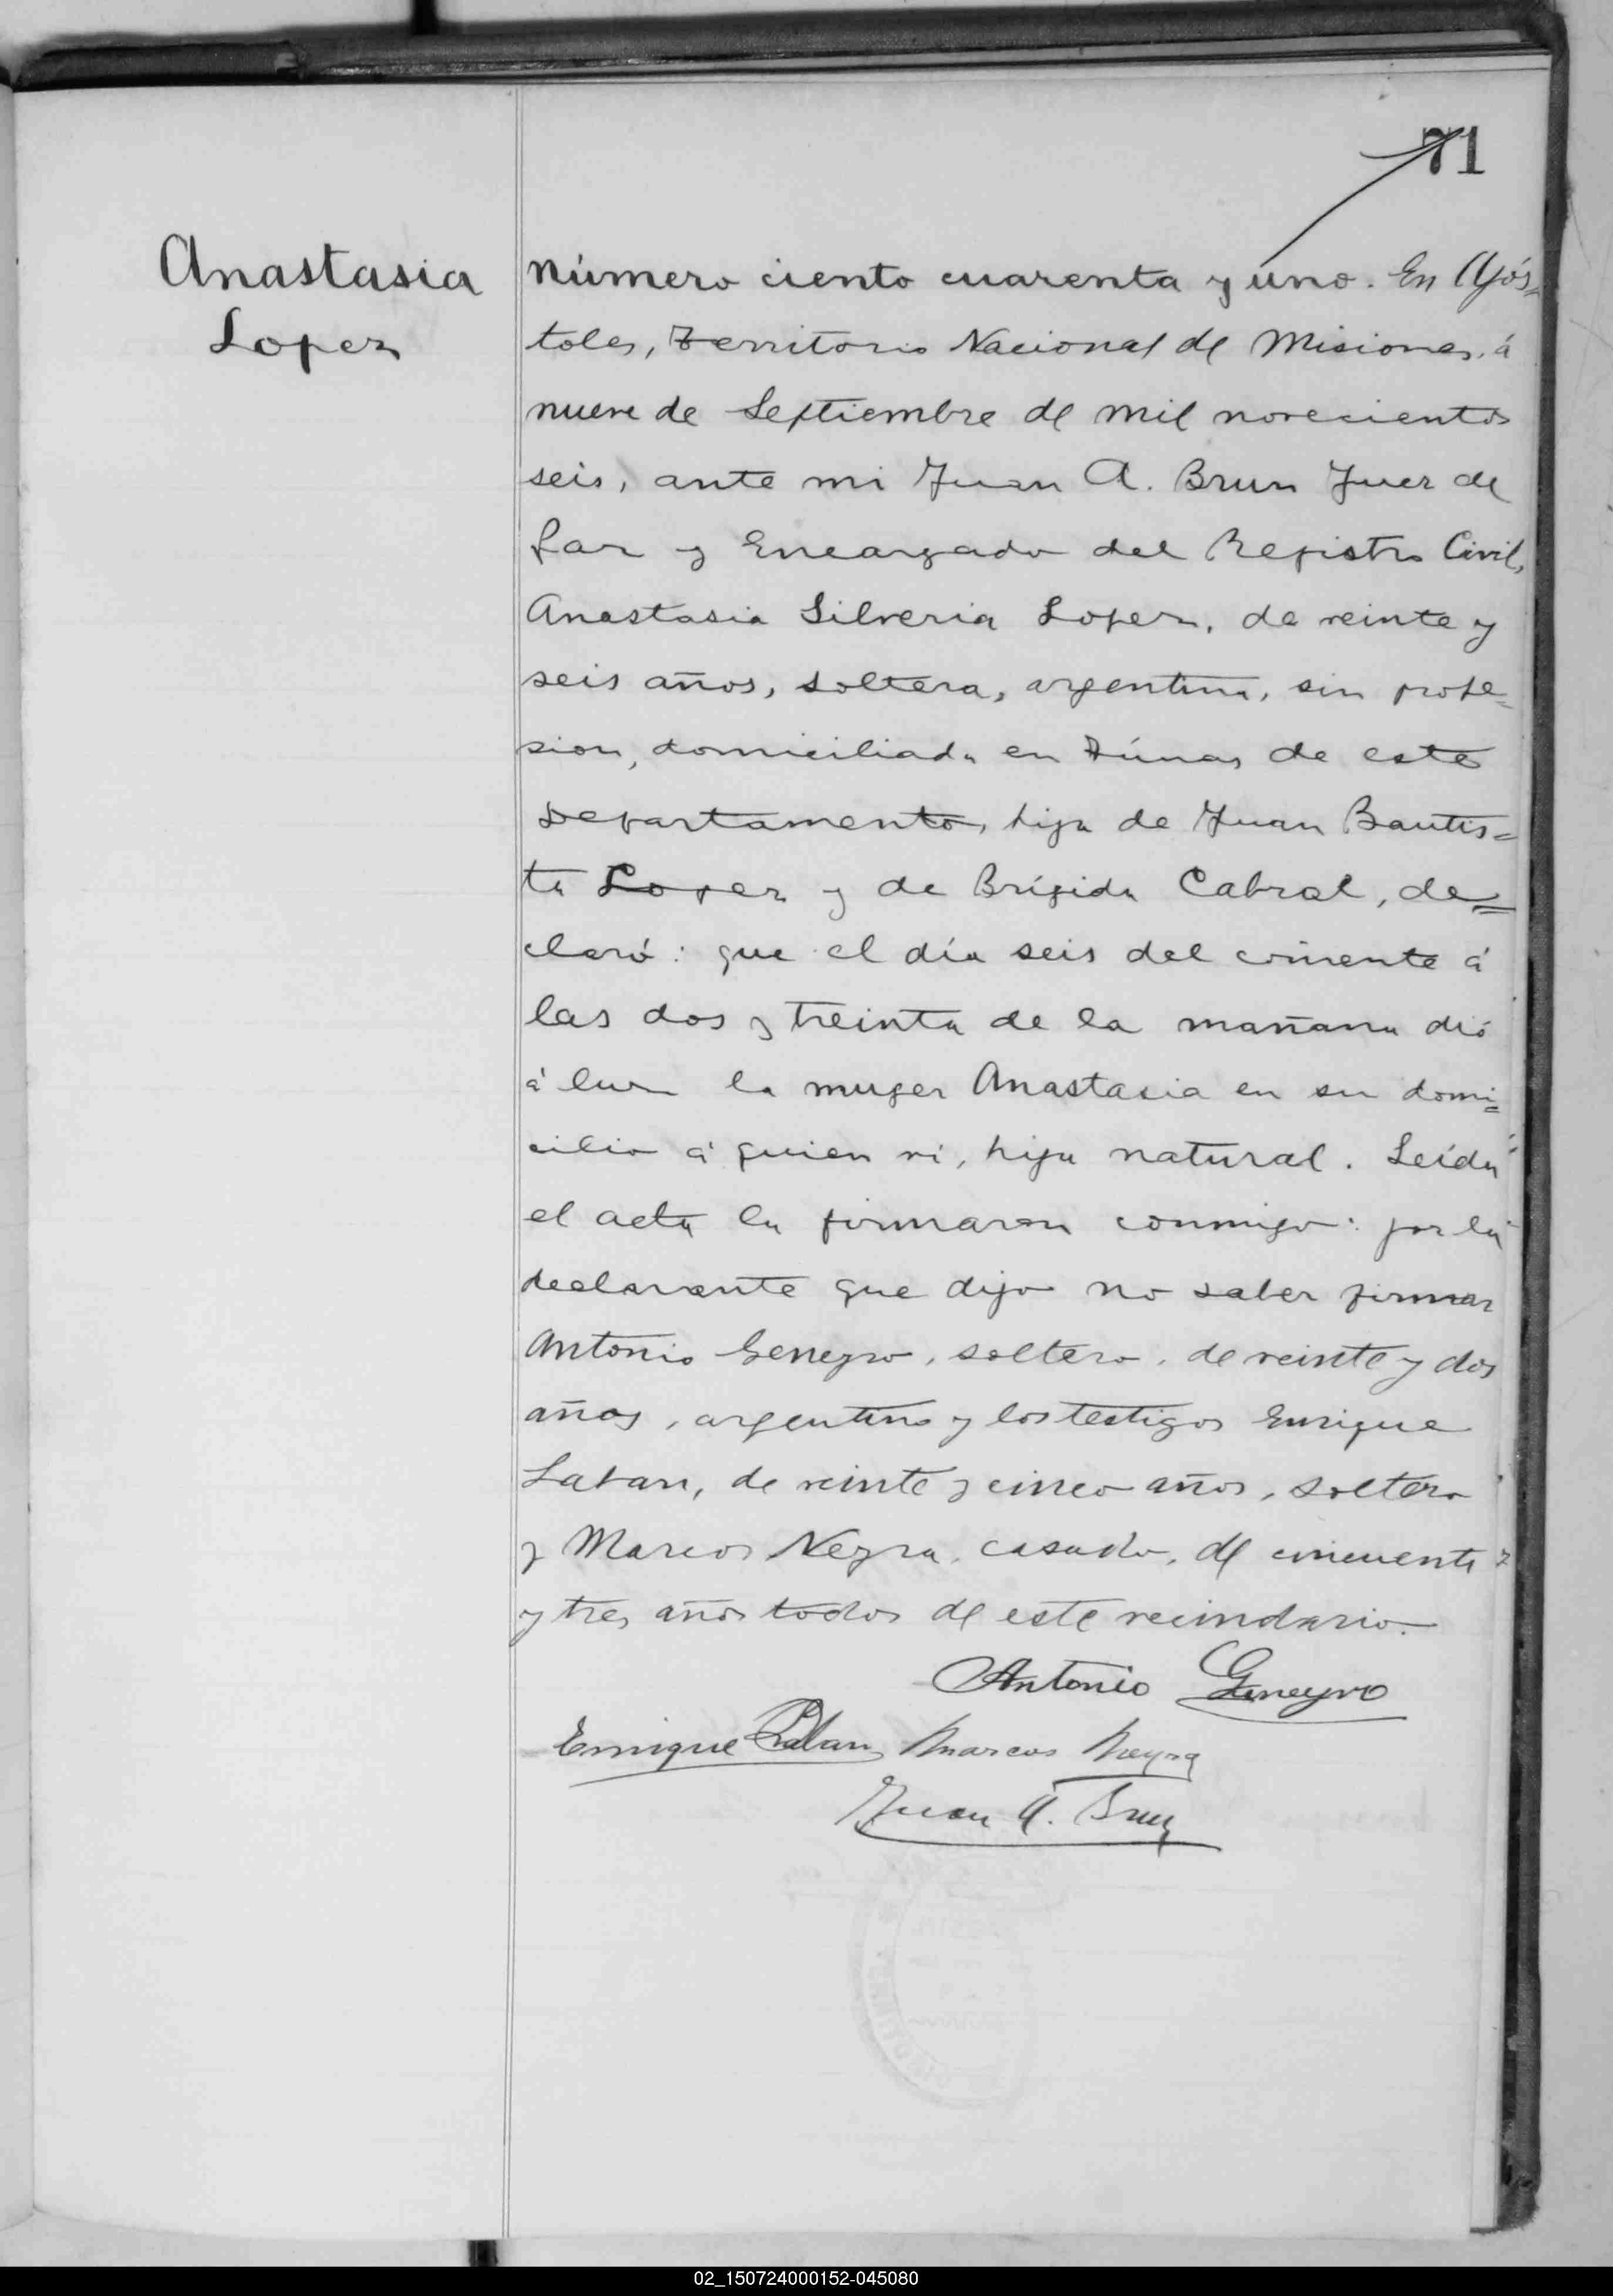 71
Anastasia
Lopez
Número ciento cuarenta y uno. En Após=
toles, Territorio Nacional de Misiones, á
nueve de Septiembre de mil novecientos
seis, ante mi Juan A. Brun Juez de
Paz y Encargado del Registro Civil,
Anastasia Silveria Lopez, de veinte y
seis años, soltera, argentina, sin profe=
sion, domiciliada en Túnas de este
Departamento, hija de Juan Bautis=
ta Lopez y de Brígida Cabral, de=
claró: que el día seis del corriente á
las dos y treinta de la mañana dió
á luz la muger Anastasia en su domi=
cilio á quien vi, hija natural. Leída
el acta la firmaron conmigo: por la
declarante que dijo no saber firmar
Antonio Geneyro, soltero, de veinte y dos
años, argentino y los testigos Enrique
de veinte y cinco años, soltero
y Marcos Neyra, casado, de cincuenta
y tres años todos de este vecindario.
Antonio Geneyro
Enrique Marcos Neyra
Juan A. Brun
02_150724000152-045080